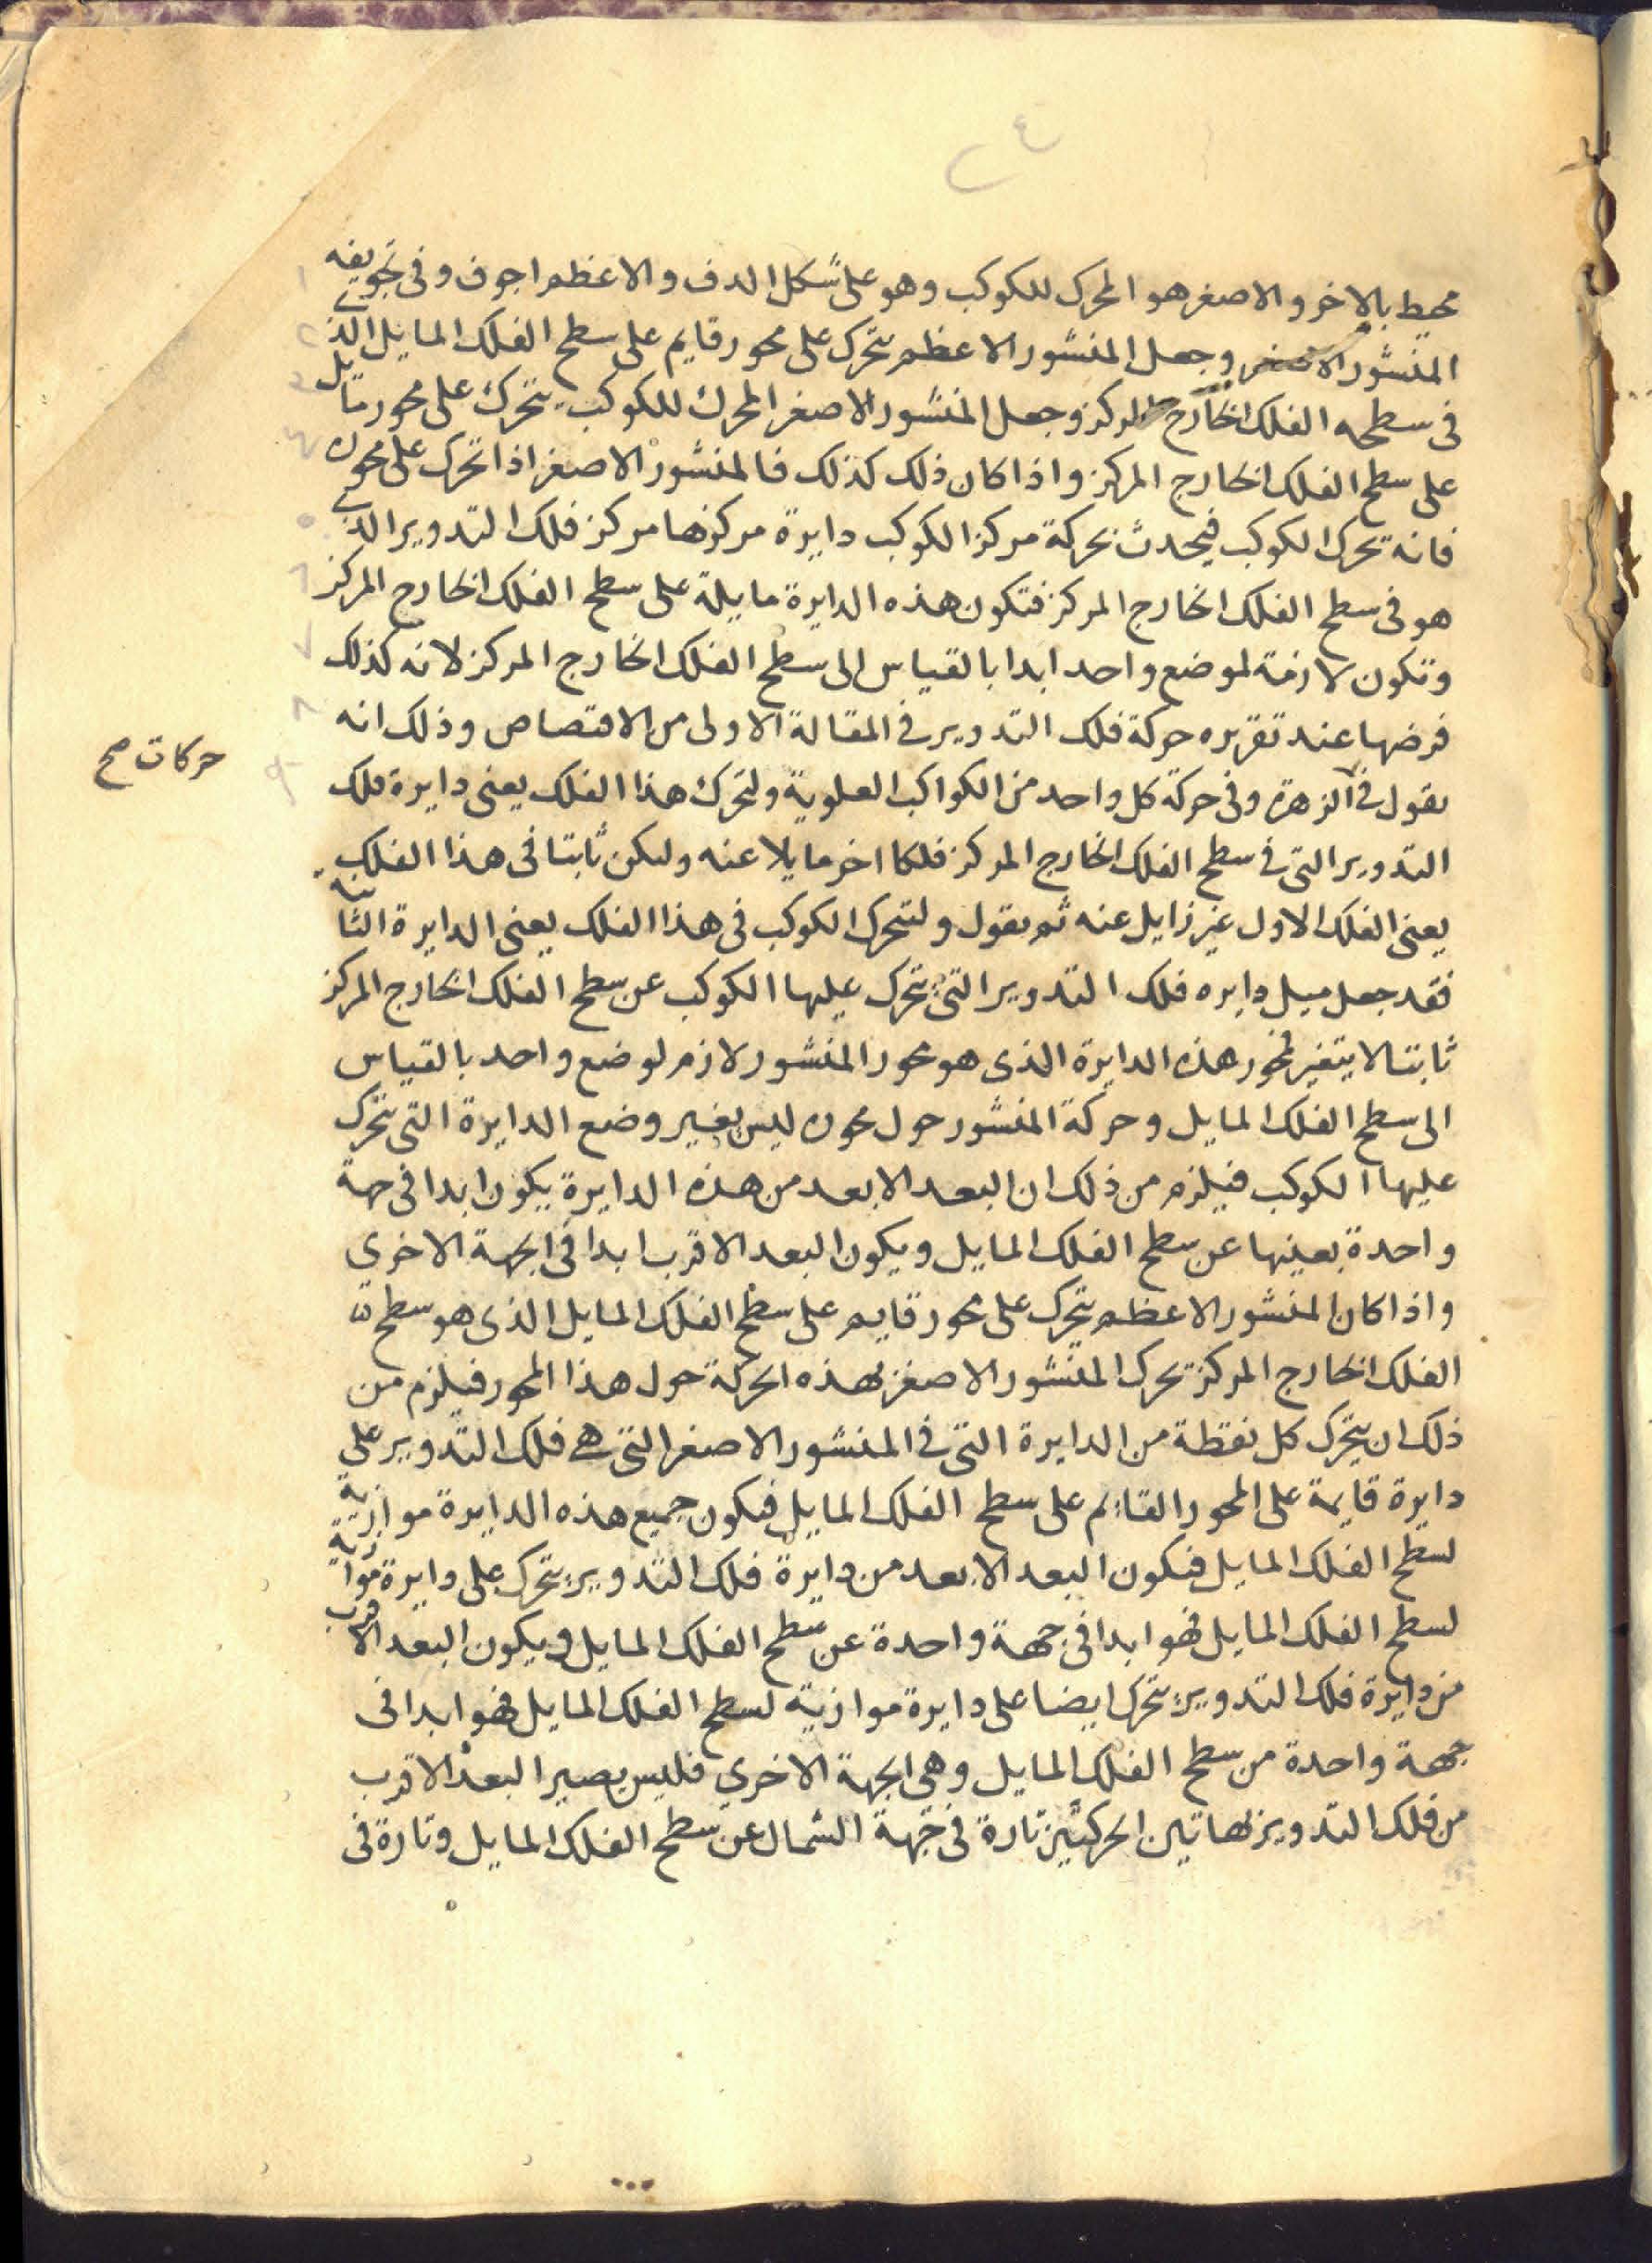 ٢٤
محيط بالاخر والاصغر هو المحرك للكوكب وهو على شكل الدف والاعظم اجوف وفى تجويفه
المنشور الاصغر وجعل المنشور الاعظم يتحرك على محور قايم على سطح الفلك المايل الذى
فى سطحه الفلك الخارج المركز وجعل المنشور الاصغر المحرك للكوكب يتحرك على محور مايل
على سطح الفلك الخارج المركز واذا كان ذلك كذلك فالمنشور الاصغر اذا تحرك على محوره
فانه يحرك الكوكب فيحدث بحركة مركز الكوكب دايرة مركزها مركز فلك التدوير الذى
هو فى سطح الفلك الخارج المركز فتكون هذه الدايرة مايلة على سطح الفلك الخارج المركز
وتكون لازمة لموضع واحد ابدا بالقياس الى سطح الفلك الخارج المركز لانه كذلك
فرضها عند تقريره حركة فلك التدوير فى المقالة الاولى من الاقتصاص وذلك انه
يقول فى الزهرة وفى حركة كل واحد من الكواكب العلوية وليتحرك هذا الفلك يعنى دايرة فلك
حركات صح
التدوير التى فى سطح الفلك الخارج المركز فلكا اخر مايلا عنه وليكن ثابتا فى هذا الفلك
يعنى الفلك الاول غير زايل عنه ثم يقول وليتحرك الكوكب فى هذا الفلك يعنى الدايرة الثانية
فقد جعل ميل دايره فلك التدوير التى يتحرك عليها الكوكب عن سطح الفلك الخارج المركز
ثابتا لا يتغير فمحور هذه الدايرة الذى هو محور المنشور لازم لوضع واحد بالقياس
الى سطح الفلك المايل وحركة المنشور حول محوره ليس يغير وضع الدايرة التى يتحرك
عليها الكوكب فيلزم من ذلك ان البعد الابعد من هذه الدايرة يكون ابدا فى جهة
واحدة بعينها عن سطح الفلك المايل ويكون البعد الاقرب ابدا فى الجهة الاخرى
واذا كان المنشور الاعظم يتحرك على محور قايم على سطح الفلك المايل الذى هو سطح
الفلك الخارج المركز تحرك المنشور الاصغر بهذه الحركة حول هذا المحور فيلزم من
ذلك ان يتحرك كل نقطة من الدايرة التى فى المنشور الاصغر التى هى فلك التدوير على
دايرة قايمة على المحور القائم على سطح الفلك المايل فيكون جميع هذه الدايرة موازية
لسطح الفلك المايل فيكون البعد الابعد من دايرة فلك التدوير يتحرك على دايرة موازية
لسطح الفلك المايل فهو ابدا فى جهة واحدة عن سطح الفلك المايل ويكون البعد الاقرب
من دايرة فلك التدوير يتحرك ايضا على دايرة موازية لسطح الفلك المايل فهو ابدا فى
جهة واحدة من سطح الفلك المايل وهى الجهة الاخرى فليس يصير البعد الاقرب
من فلك التدوير بهاتين الحركتين تارة فى جهة الشمال عن سطح الفلك المايل وتارة فى